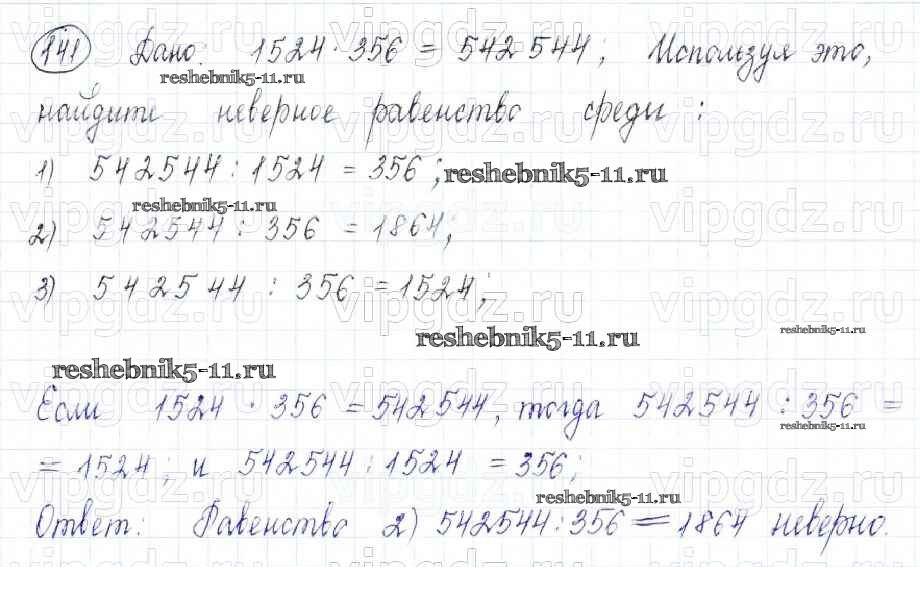 141 Дано: 1524 · 356 = 542544; Используя это,
reshebnik5-11.ru
найдите неверное равенство среди:
1) 542544 : 1524 = 356; reshebnik5-11.ru
reshebnik5-11.ru
2) 542544 : 356 = 1864;
3) 542544 : 356 = 1524;
vipgdz.ru vipgdz.ru vipgdz.ru
reshebnik5-11.ru reshebnik5-11.ru
reshebnik5-11.ru
Если 1524 · 356 = 542544, тогда 542544 : 356 =
reshebnik5-11.ru
= 1524; и 542544 : 1524 = 356;
reshebnik5-11.ru
Ответ: Равенство 2) 542544 : 356 = 1864 неверно.